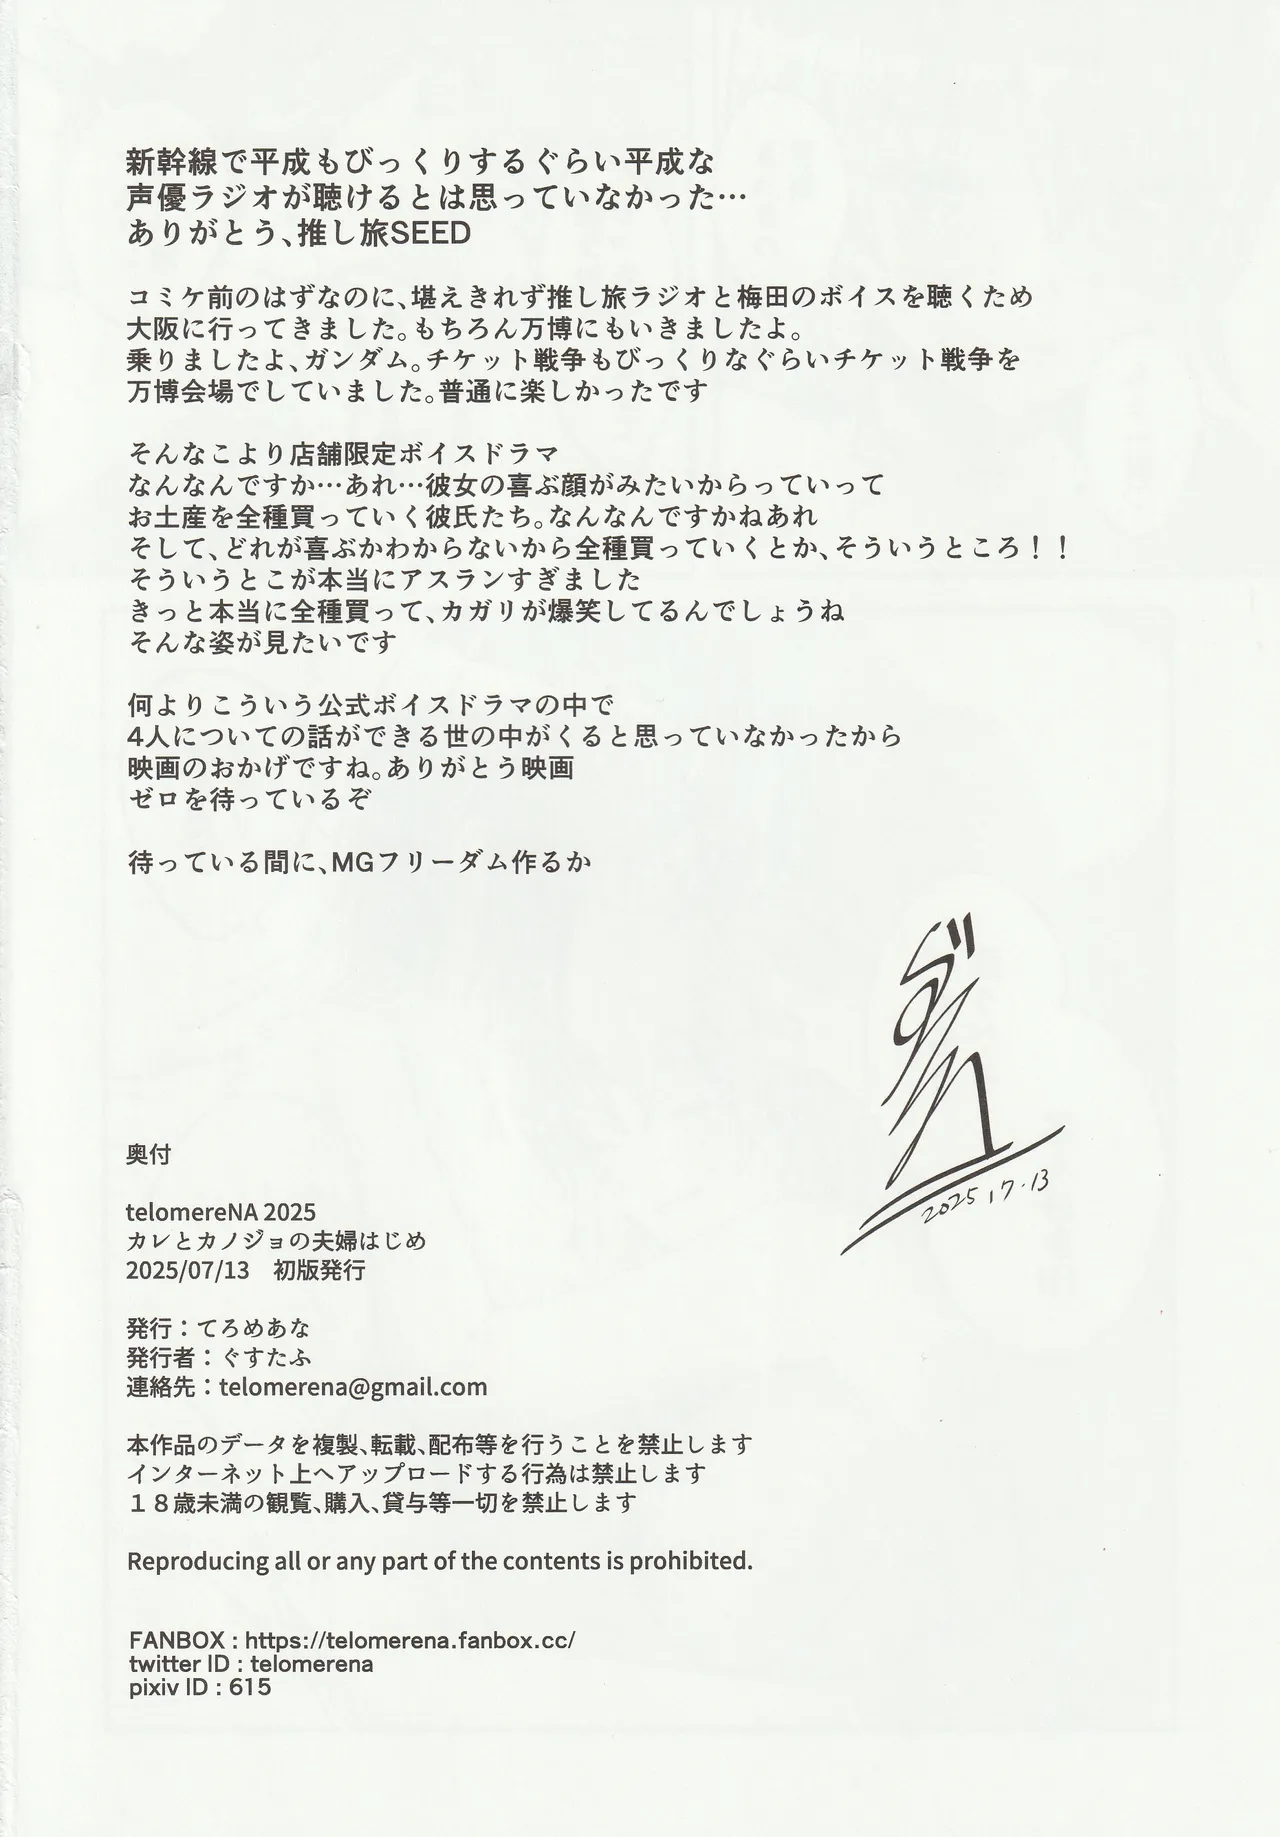 新幹線で平成もびっくりするぐらい平成な
声優ラジオが聴けるとは思っていなかった…
ありがとう、推し旅SEED
コミケ前のはずなのに、堪えきれず推し旅ラジオと梅田のボイスを聴くため
大阪に行ってきました。もちろん万博にもいきましたよ。
乗りましたよ、ガンダム。チケット戦争もびっくりなぐらいチケット戦争を
万博会場でしていました。普通に楽しかったです
そんなこより店舗限定ボイスドラマ
なんなんですか…あれ…彼女の喜ぶ顔がみたいからっていって
お土産を全種買っていく彼氏たち。なんなんですかねあれ
そして、どれが喜ぶかわからないから全種買っていくとか、そういうところ！！
そういうとこが本当にアスランすぎました
きっと本当に全種買って、カガリが爆笑してるんでしょうね
そんな姿が見たいです
何よりこういう公式ボイスドラマの中で
4人についての話ができる世の中がくると思っていなかったから
映画のおかげですね。ありがとう映画
ゼロを待っているぞ
待っている間に、MGフリーダム作るか
2025 , 7 . 13
奥付
telomereNA 2025
カレとカノジョの夫婦はじめ
2025/07/13　初版発行
発行：てろめあな
発行者：ぐすたふ
連絡先：telomerena@gmail.com
本作品のデータを複製、転載、配布等を行うことを禁止します
インターネット上へアップロードする行為は禁止します
１８歳未満の観覧、購入、貸与等一切を禁止します
Reproducing all or any part of the contents is prohibited.
FANBOX : https://telomerena.fanbox.cc/
twitter ID : telomerena
pixiv ID : 615